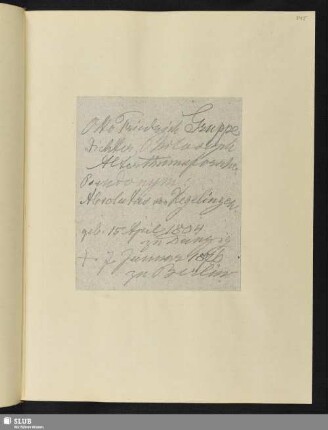 Otto Friedrich Gruppe
Dichter, Philosoph
Altertumsforscher,
Pseudonym:
Absolutus v. Hegelingen,
geb. 15 April 1804
zu Danzig
+ 7. Januar 1876
zu Berlin
SLUB
Wir führen Wissen.